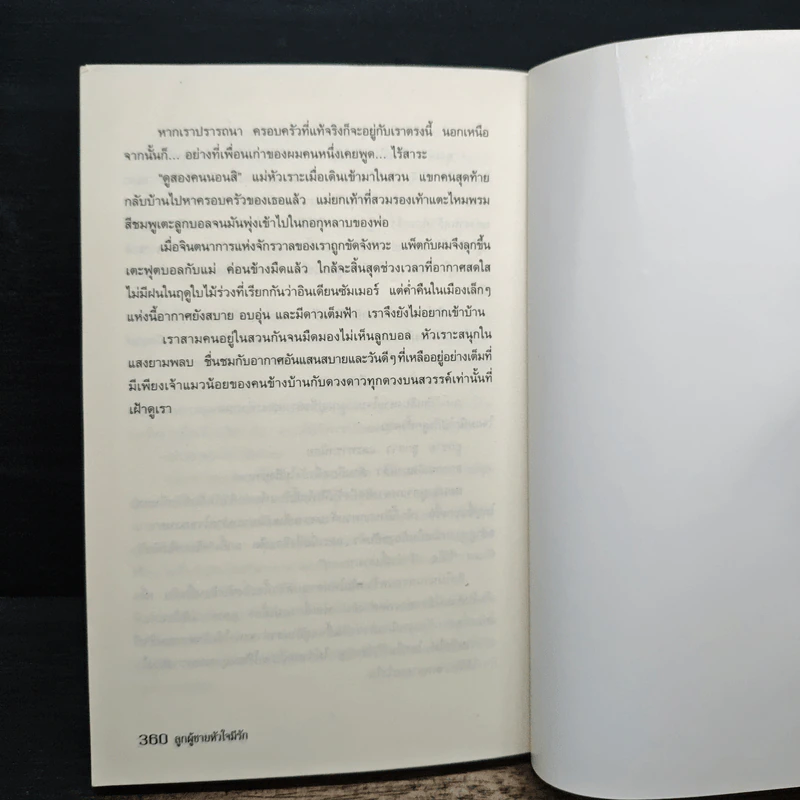 หากเราปรารถนา ครอบครัวที่แท้จริงก็จะอยู่กับเราตรงนี้ นอกเหนือ
จากนั้นก็... อย่างที่เพื่อนเก่าของผมคนหนึ่งเคยพูด... ไร้สาระ
"ดูสองคนนอนสิ" แม่หัวเราะเมื่อเดินเข้ามาในสวน แขกคนสุดท้าย
กลับบ้านไปหาครอบครัวของเธอแล้ว แม่ยกเท้าที่สวมรองเท้าแตะไหมพรม
สีชมพูเตะลูกบอลจนมันพุ่งเข้าไปในกอกุหลาบของพ่อ
เมื่อจินตนาการแห่งจักรวาลของเราถูกขัดจังหวะ แพ็ตกับผมจึงลุกขึ้น
เตะฟุตบอลกับแม่ ค่อนข้างมืดแล้ว ใกล้จะสิ้นสุดช่วงเวลาที่อากาศสดใส
ไม่มีฝนในฤดูใบไม้ร่วงที่เรียกกันว่าอินเดียนซัมเมอร์ แต่ค่ำคืนในเมืองเล็กๆ
แห่งนี้อากาศยังสบาย อบอุ่น และมีดาวเต็มฟ้า เราจึงยังไม่อยากเข้าบ้าน
เราสามคนอยู่ในสวนกันจนมืดมองไม่เห็นลูกบอล หัวเราะสนุกใน
แสงยามพลบ ชื่นชมกับอากาศอันแสนสบายและวันดีๆที่เหลืออยู่อย่างเต็มที่
มีเพียงเจ้าแมวน้อยของคนข้างบ้านกับดวงดาวทุกดวงบนสวรรค์เท่านั้นที่
เฝ้าดูเรา
360 ลูกผู้ชายหัวใจมีรัก